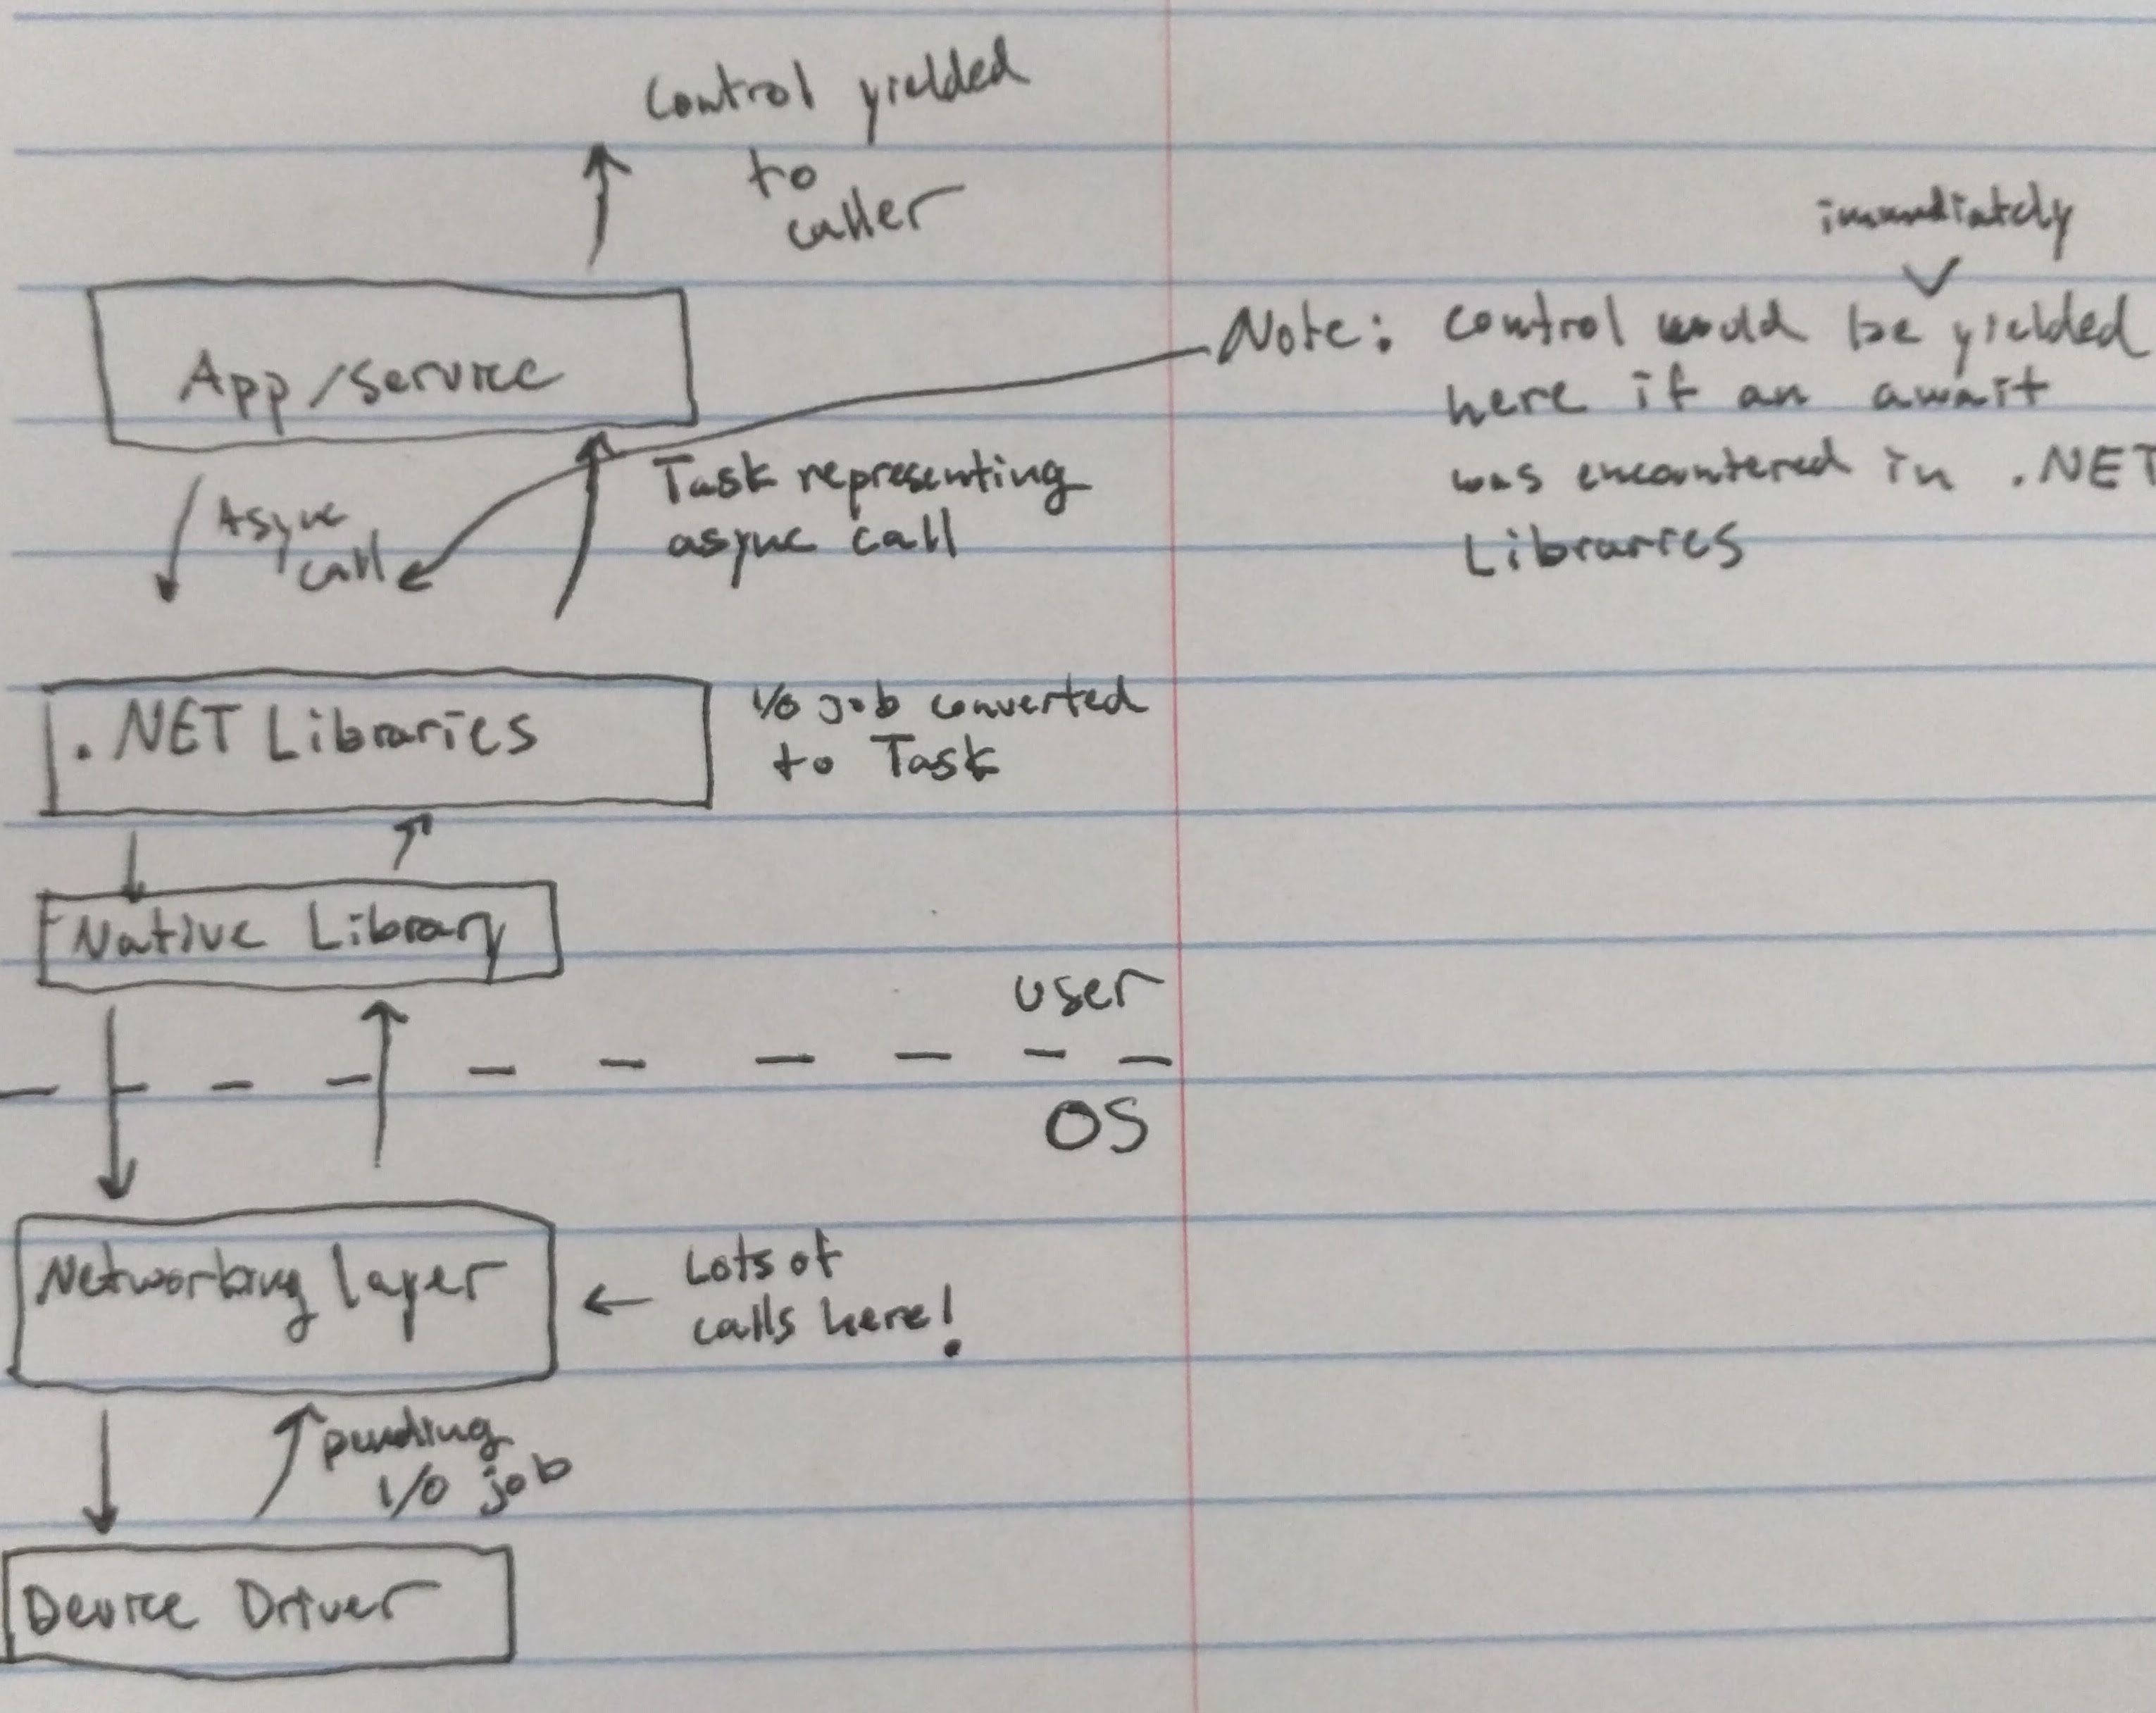 Control yielded
to
caller
immediately
App/Service
Note: control would be yielded
here if an await
was encountered in .NET
Libraries
Async
call
Task representing
async call
.NET Libraries
I/O job converted
to Task
Native Library
user
OS
Networking layer
Lots of
calls here!
pending
I/O job
Device Driver